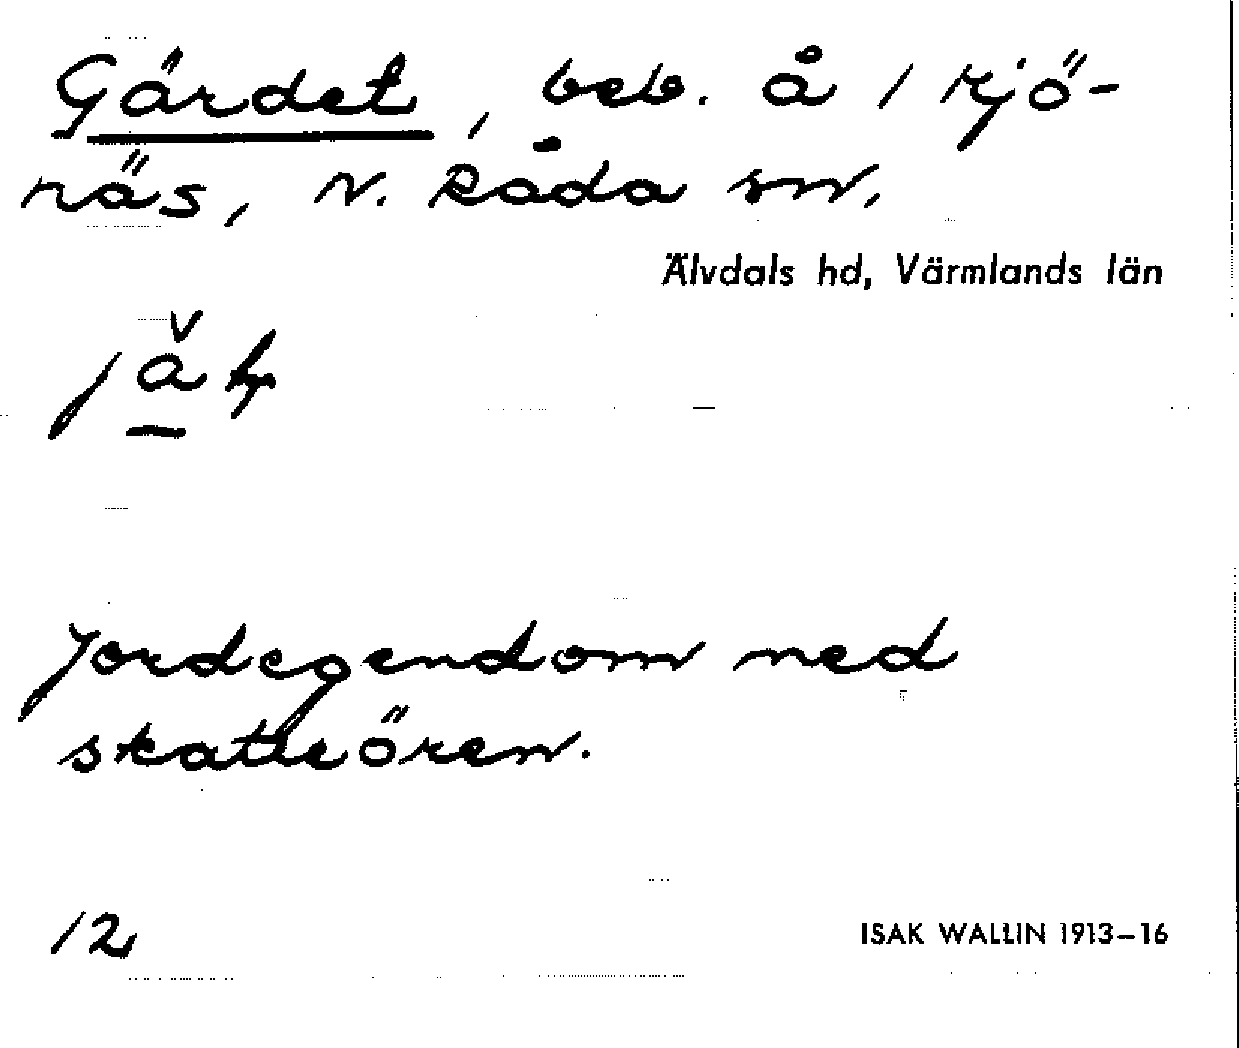 Gärdet, beb. å 1 Kjö-
näs, N. Råda sn,
Älvdals hd, Värmlands län
Jordegendom med
skatteören.
12
ISAK WALLIN 1913–16